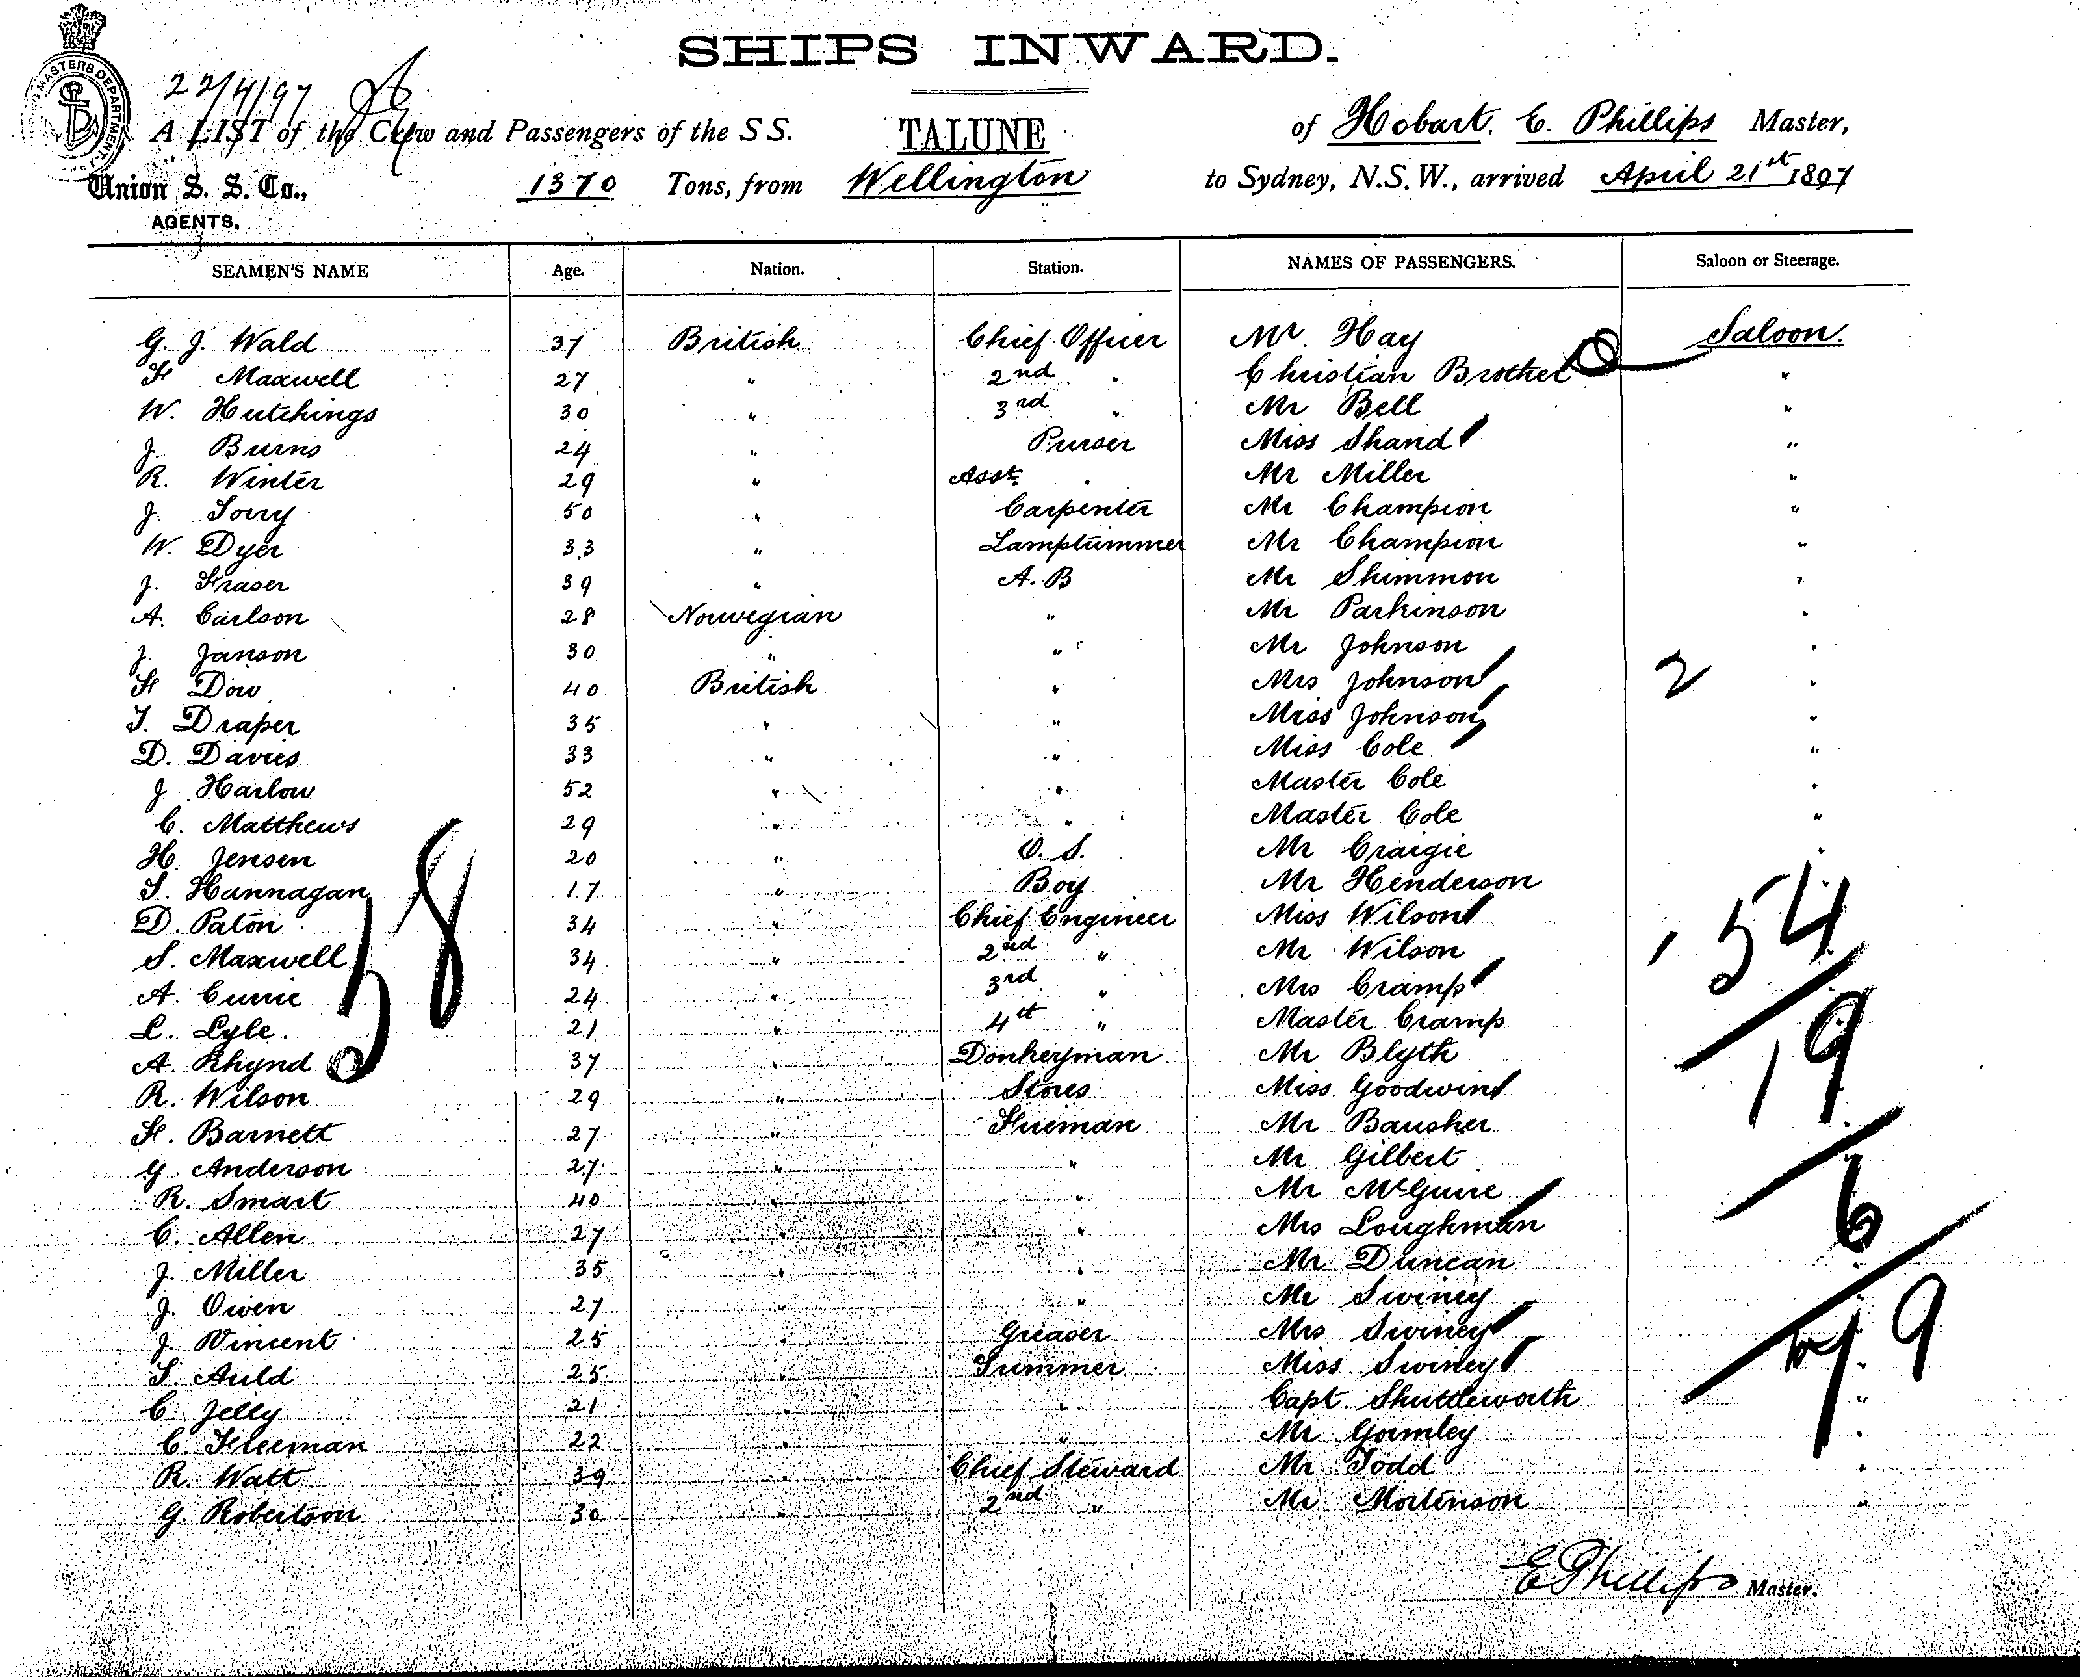 SHIPS INWARD.
MASTERS DEPARTMENT
22/4/97
A LIST of the Crew and Passengers of the S S. TALUNE of Hobart. E. Phillips Master,
Union S. S. Co., 1370 Tons, from Wellington to Sydney, N.S.W., arrived April 21st 1897
AGENTS.
SEAMEN'S NAME Age. Nation. Station. NAMES OF PASSENGERS. Saloon or Steerage.
G. J. Wald 37 British Chief Officer Mr. Hay Saloon.
F Maxwell 27 " 2nd " Christian Brother "
W. Hutchings 30 " 3rd " Mr Bell "
J. Burns 24 " Purser Miss Shand "
R. Winter 29 " Asst. " Mr Miller "
J. 50 " Carpenter Mr Champion "
W. Dyer 33 " Lamptrimmer Mr Champion "
J. Fraser 39 " A. B Mr Shimmon "
A. Carlson 28 Norwegian " Mr Parkinson "
J. Janson 30 " " Mr Johnson "
F Dow 40 British " Mrs Johnson 2 "
T. Draper 35 " " Miss Johnson "
D. Davies 33 " " Miss Cole "
J Harlow 52 " " Master Cole "
C. Matthews 29 " " Master Cole "
H. Jensen 20 " O. S. Mr Craigie "
T. Hannagan 17 " Boy Mr Henderson
D. Paton 34 " Chief Engineer Miss Wilson 54
S. Maxwell 34 " 2nd " Mr Wilson
A. Currie 24 " 3rd " Mrs Cramp
L. Lyle. 21 " 4th " Master Cramp 19
A. Rhynd 37 " Donkeyman Mr Blyth
R. Wilson 29 " Stores Miss Goodwin
F. Barnett 27 " Fireman Mr Bausher
G. Anderson 27 " " Mr Gilbert
R. Smart 40 " " Mr McGuire 6
C. Allen 27 " " Mrs Loughman
J. Miller 35 " " Mr Duncan
J. Owen 27 " " Mr Swiney
J. Vincent 25 " Greaser Mrs Swiney
T. Auld 25 " Trimmer Miss Swiney 79
C. Jelly 21 " " Capt Shuttleworth "
C. Fleeman 22 " " Mr Gormley "
R. Watt 39 " Chief Steward Mr Todd "
G. Robertson 30 " 2nd " Mr Mortenson "
58
E Phillips Master.